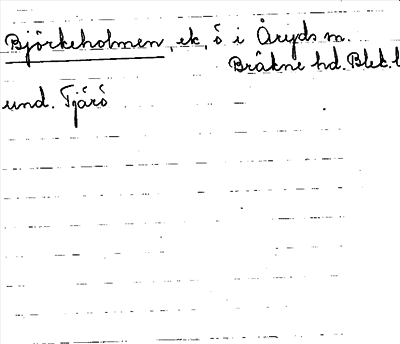 Björkeholmen, ek, ö i Åryds m.
Bräkne hd. Blek. l
und. Tjärö